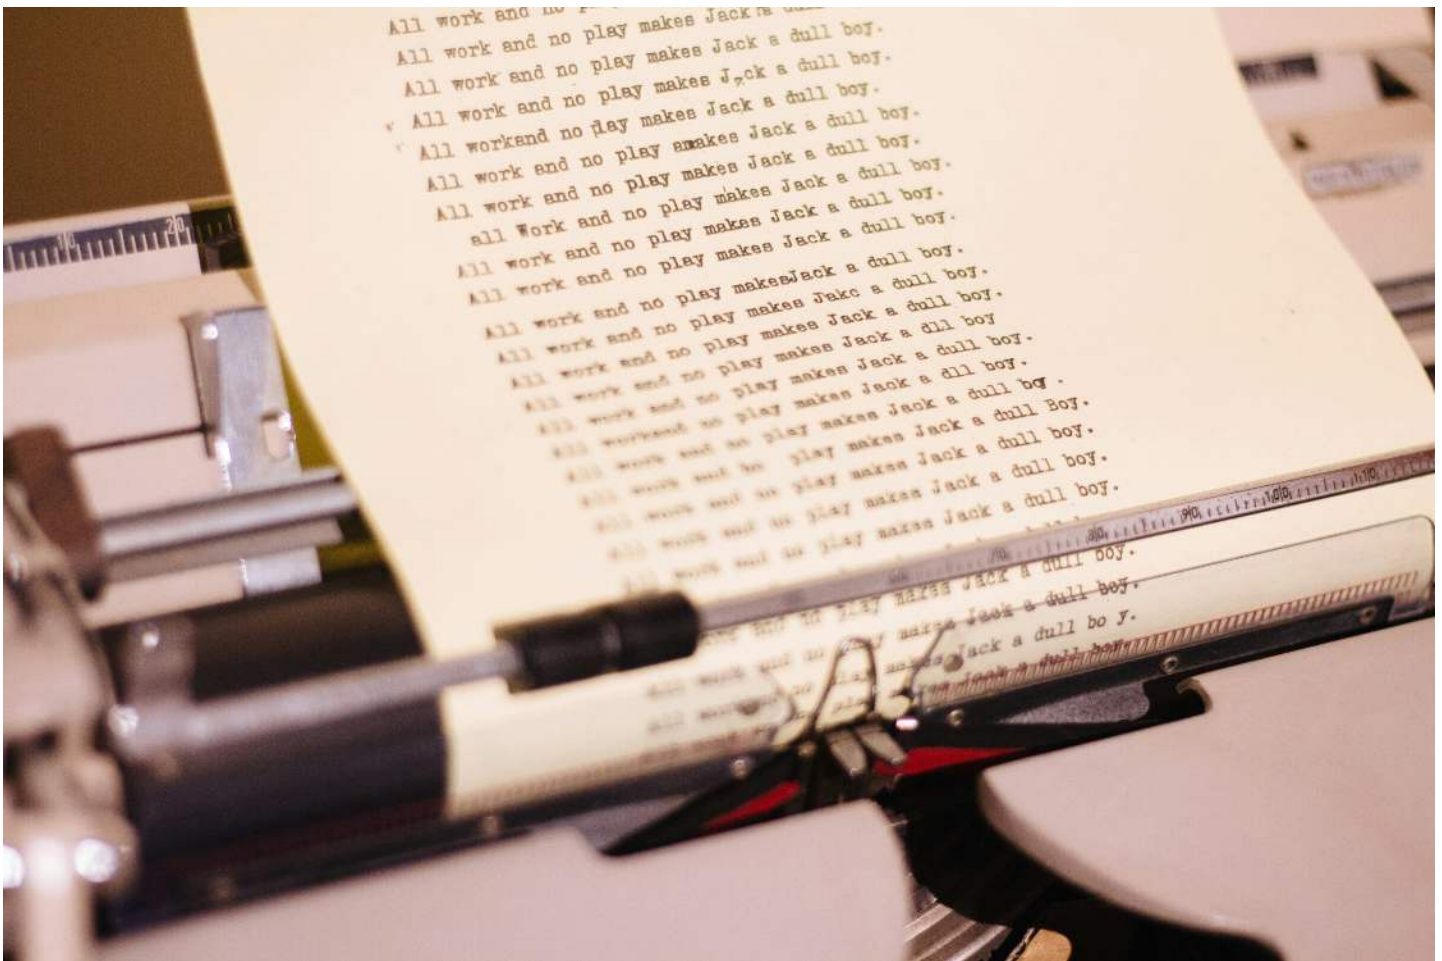 All work and no
All work and no play makes Jack a dull
All work and no play makes Jack a dull boy.
All work and no play makes J ck a dull boy.
All workand no play makes Jack a dull boy.
All work and no play amakes Jack a dull boy.
All work and no play makes Jack a dull boy.
all Work and no play makes Jack a dull boy.
All work and no play makes Jack a dull boy.
All work and no play makes Jack a dull boy.
All work and no play makesJack a dull boy.
All work and no play makes Jakc a dull boy.
All work and no play makes Jack a dull boy.
All work and no play makes Jack a dll boy
All work and no play makes Jack a dull boy.
All workand no play makes Jack a dll boy.
All work and no play makes Jack a dull boy .
All work and no play makes Jack a dull Boy.
All work and no play makes Jack a dull boy.
All work and no play makes Jack a dull boy.
All work and no play makes Jack a dull boy.
and no play makes Jack a dull boy.
All work and no play makes Jack a dull boy.
All work no play makes Jack a dull bo y.
Jack a dull boy.
10 20
70 80 90 100 110